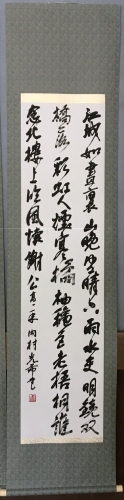 江城如畫裏山晚望晴空兩水夾明鏡双
橋落彩虹人煙寒橘柚穐色老梧桐誰
念北樓上臨風懷謝公